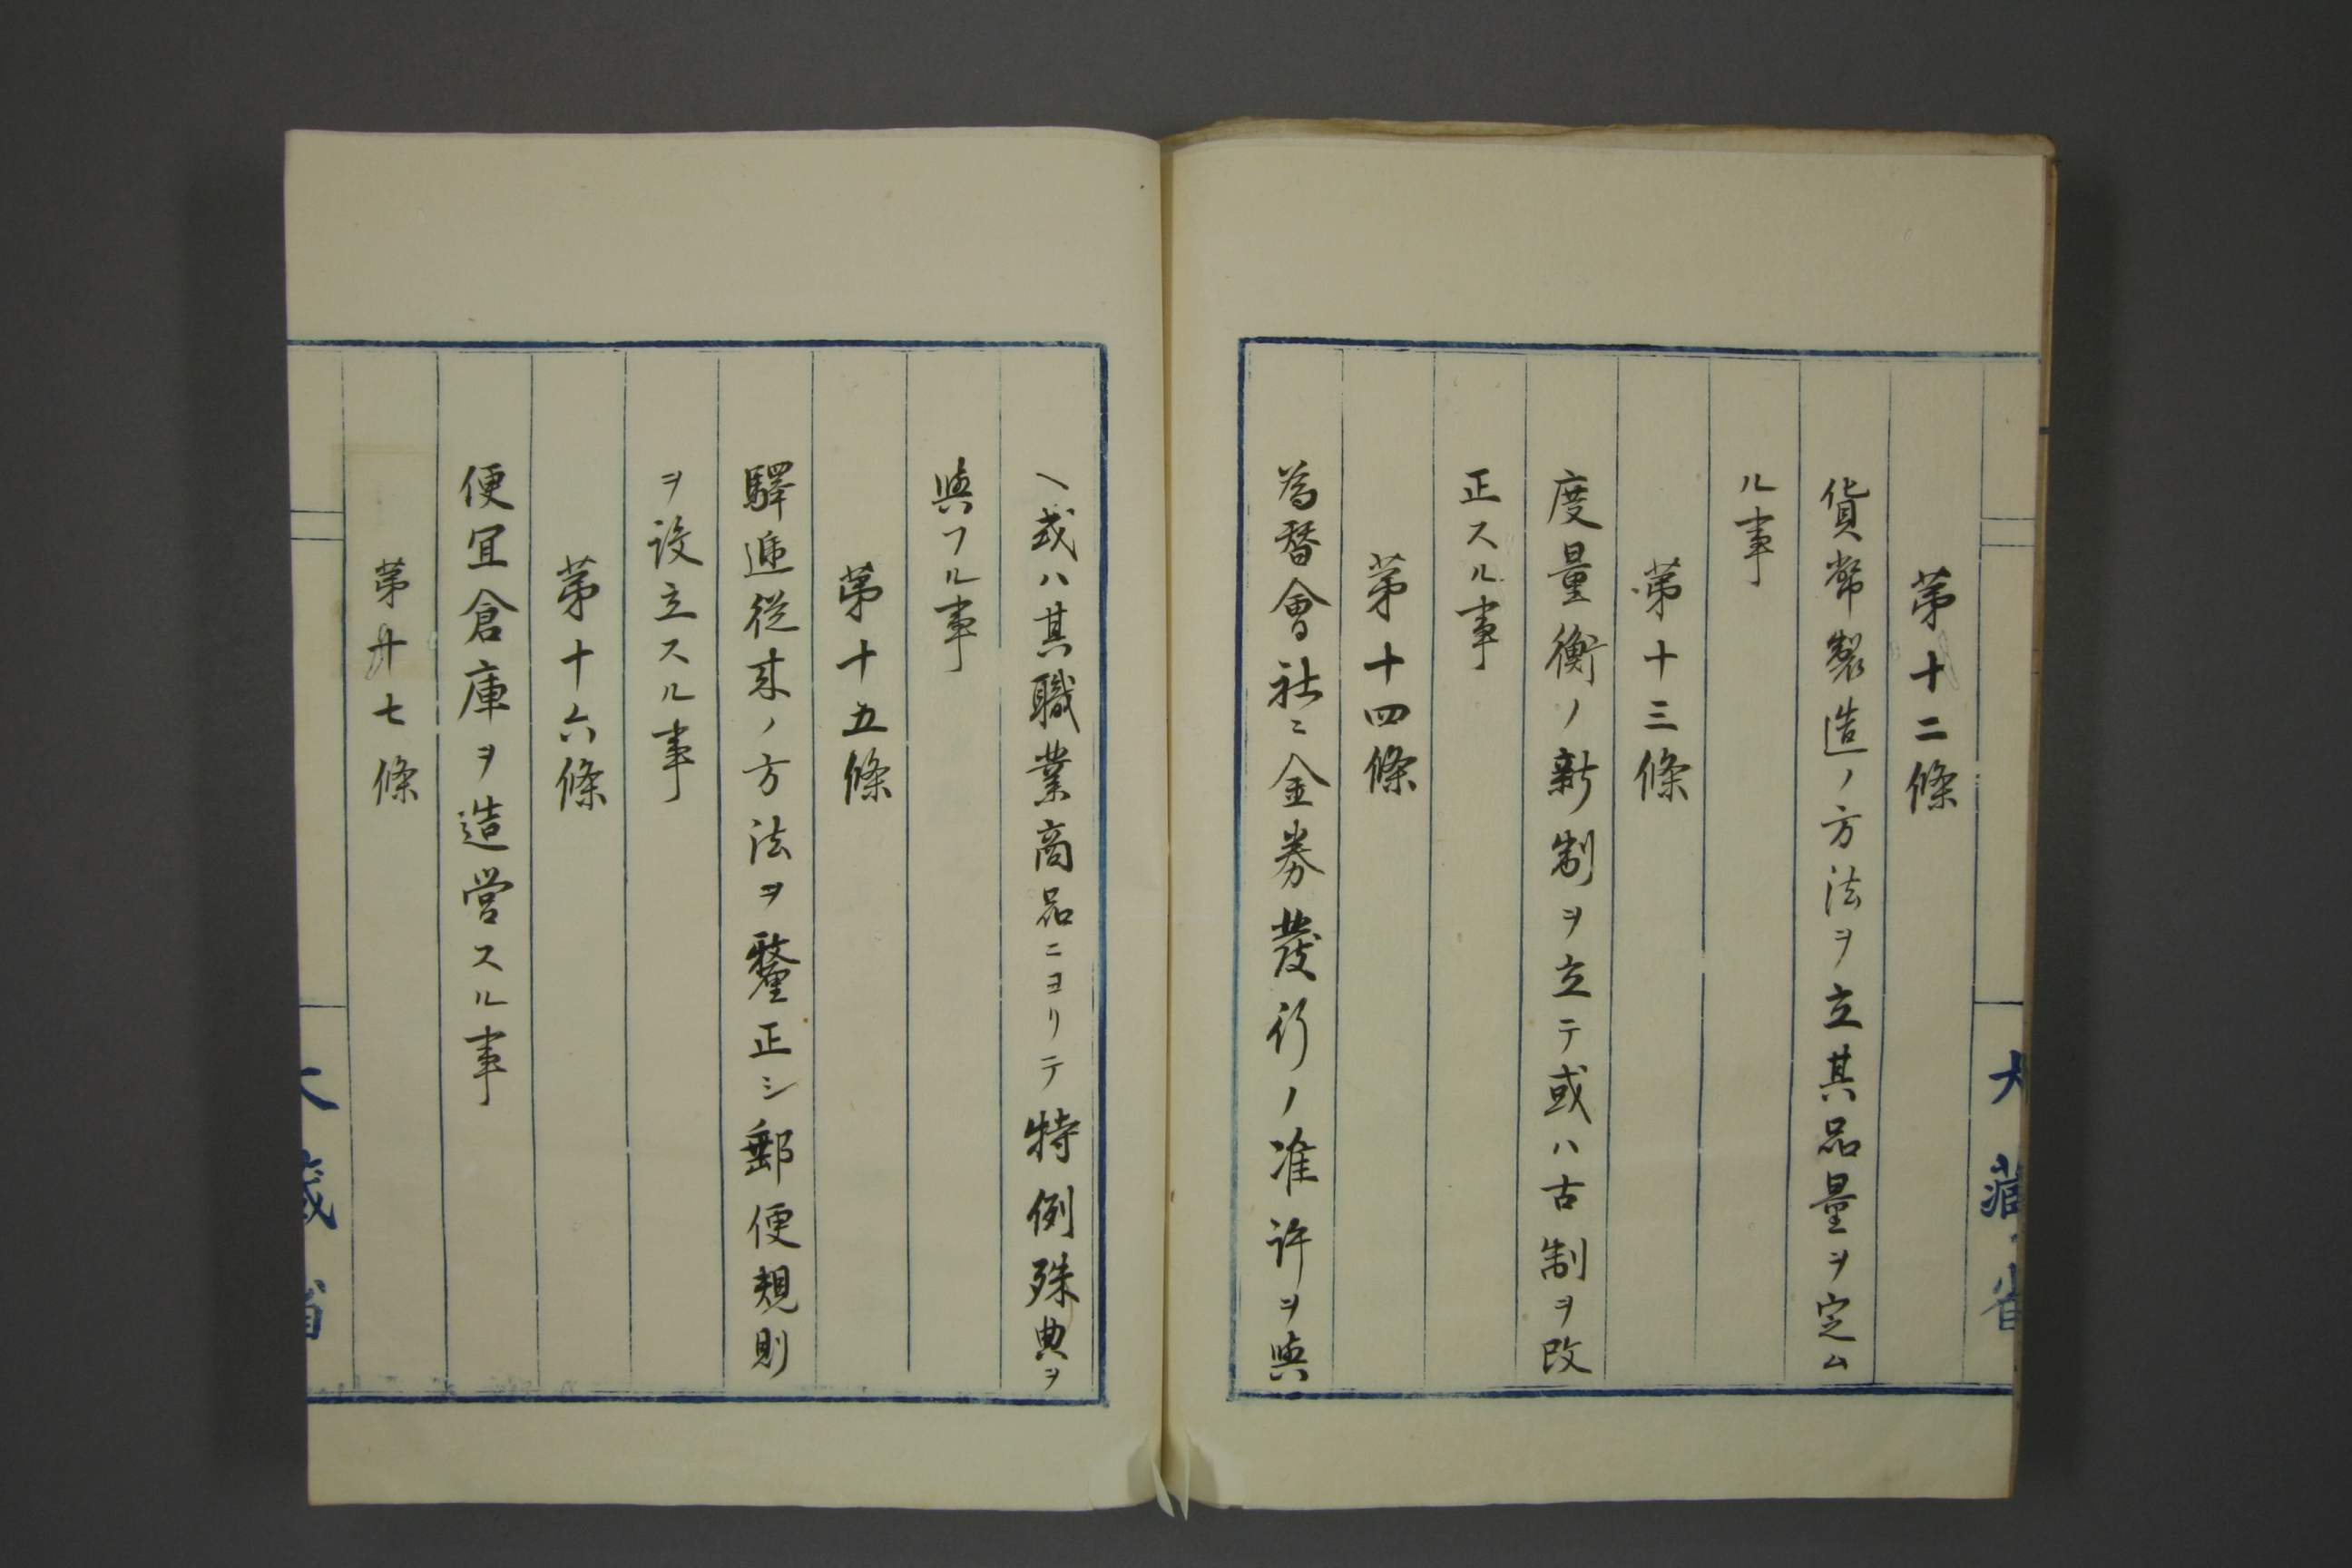 第十二條
貨幣製造ノ方法ヲ立其品量ヲ定ム
ル事
第十三條
度量衡ノ新制ヲ立テ或ハ古制ヲ改
正スル事
第十四條
為替會社ニ金券發行ノ准許ヲ與
大藏省
ヘ或ハ其職業商品ニヨリテ特例殊典ヲ
與フル事
第十五條
驛逓従来ノ方法ヲ釐正シ郵便規則
ヲ設立スル事
第十六條
便宜倉庫ヲ造営スル事
第十七條
大藏省